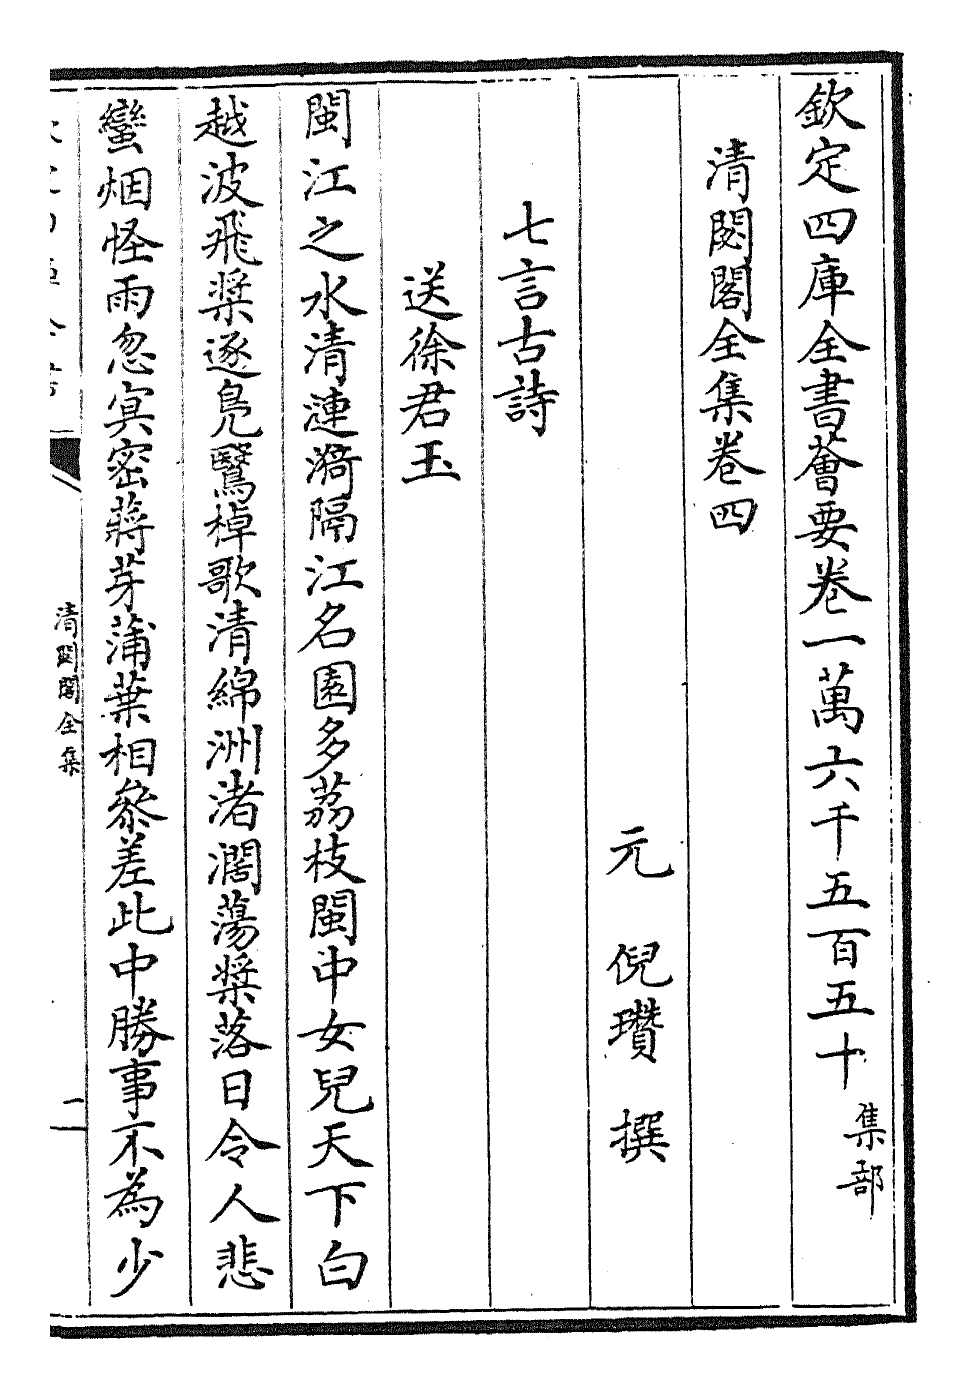 欽定四庫全書薈要卷一萬六千五百五十集部
清閟閣全集卷四
元 倪瓚 撰
七言古詩
送徐君玉
閩江之水清漣漪隔江名園多荔枝閩中女兒天下白
越波飛槳逐鳧鷖棹歌清綿洲渚濶蕩槳落日令人悲
蠻烟怪雨忽㝠密蔣芽蒲葉相叅差此中勝事不為少
清閟閣全集